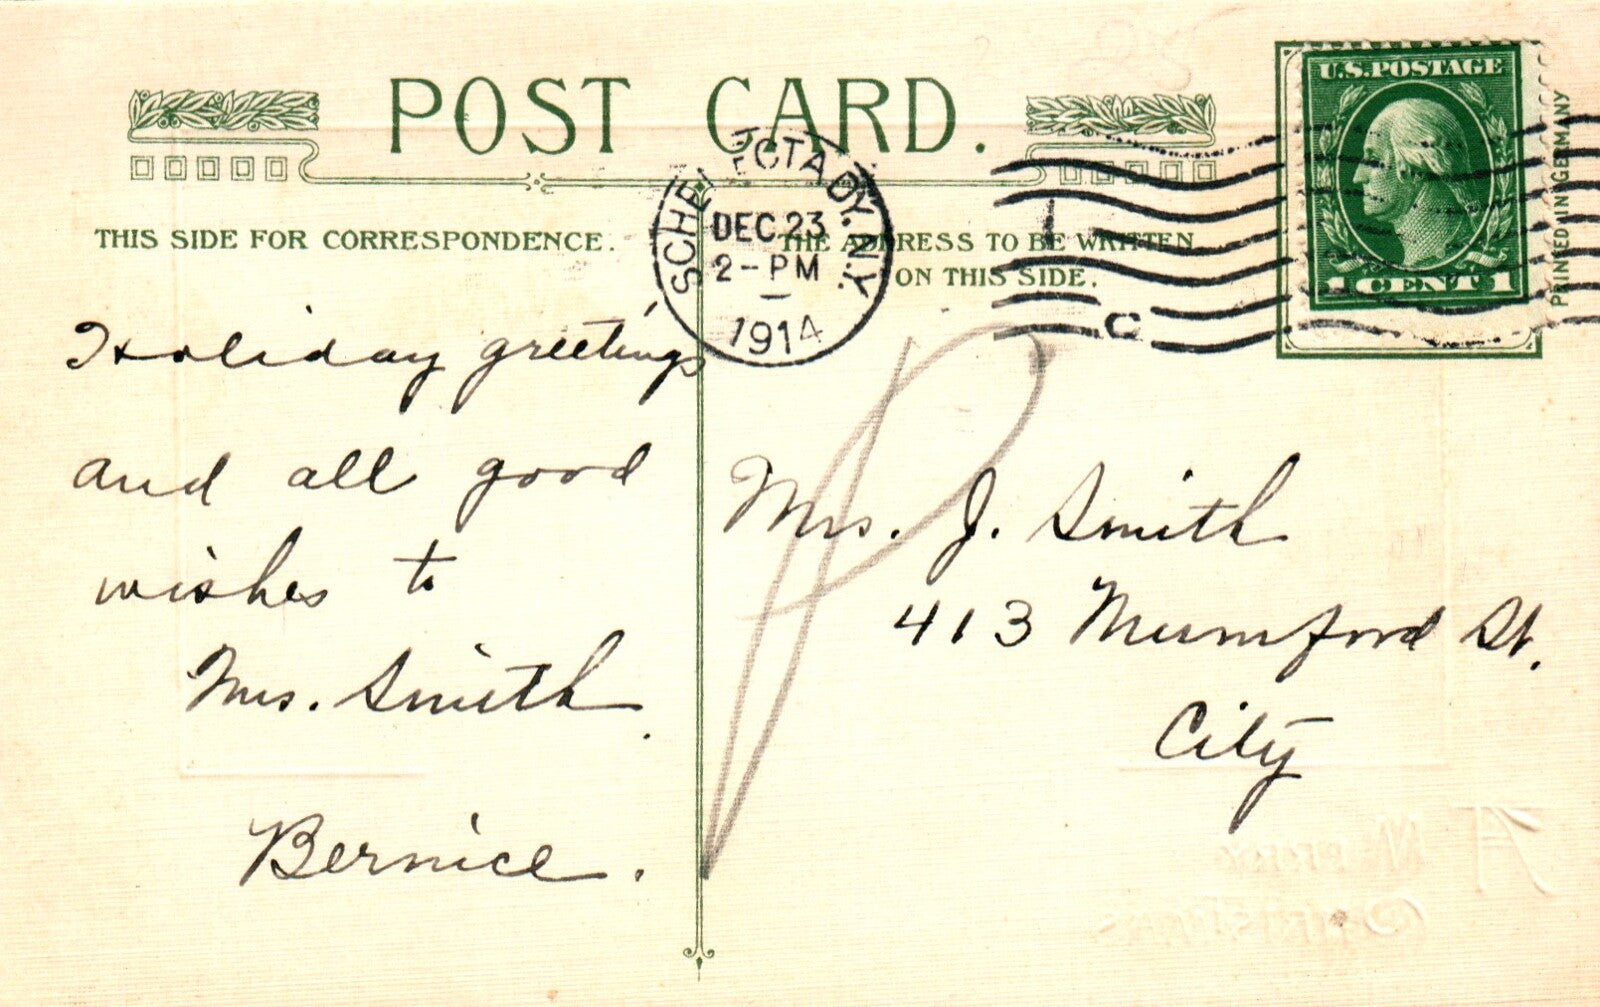 POST CARD.
THIS SIDE FOR CORRESPONDENCE.
THE ADDRESS TO BE WRITTEN
ON THIS SIDE.
SCHENECTADY, N.Y.
DEC 23
2-PM
1914
C
U.S.POSTAGE
1 CENT 1
PRINTED IN GERMANY
Holiday greetings
and all good
wishes to
Mrs. Smith.
Bernice.
Mrs. J. Smith
413 Mumford St.
City
A
Merry
Christmas